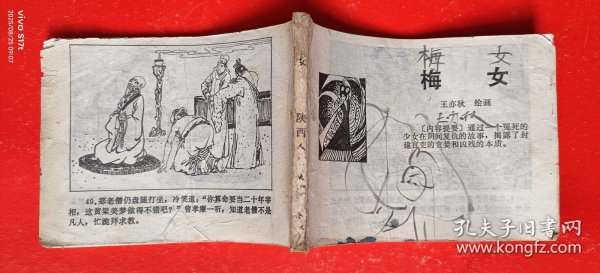 vivo S17t
2025/08/25 09:07
40.那老僧仍盘腿打坐，冷笑道：“你算命要当二十年宰
相，这黄粱美梦做得不错吧？”曾孝廉一听，知道老僧不是
凡人，忙跪拜求教。
女
陕西人
梅女
梅女
王亦秋 绘画
王亦秋
〔内容提要〕通过一个冤死的
少女在阴间复仇的故事，揭露了封
建官吏的贪婪和凶残的本质。
孔夫子旧书网
www.kongfz.com